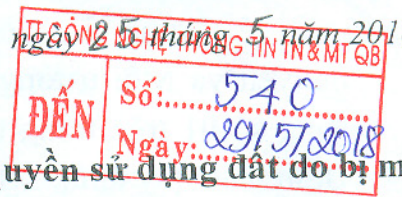 ngày 25 tháng 5 năm 201
TT CÔNG NGHỆ THÔNG TIN TN & MT QB
ĐẾN
Số:..... 540
Ngày:..... 29/5/2018
uyền sử dụng đất do bị m